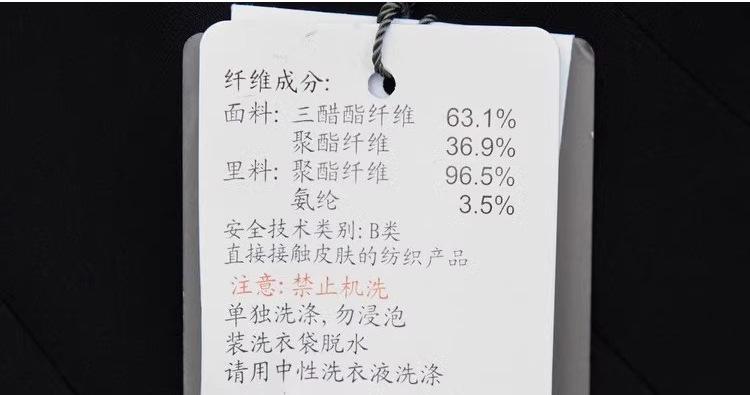 纤维成分:
面料: 三醋酯纤维 63.1%
聚酯纤维 36.9%
里料: 聚酯纤维 96.5%
氨纶 3.5%
安全技术类别: B类
直接接触皮肤的纺织产品
注意: 禁止机洗
单独洗涤, 勿浸泡
装洗衣袋脱水
请用中性洗衣液洗涤